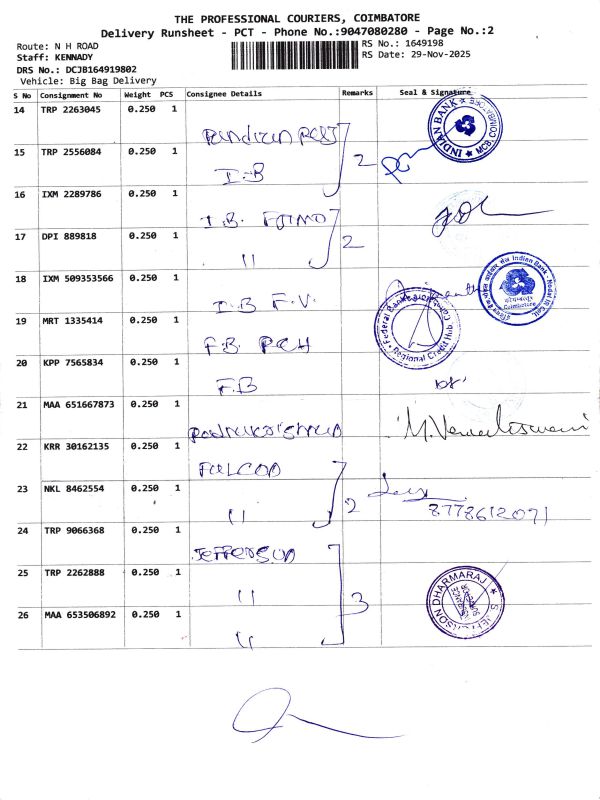 THE PROFESSIONAL COURIERS, COIMBATORE
Delivery Runsheet - PCT - Phone No.:9047080280 - Page No.:2
Route: N H ROAD
RS No.: 1649198
Staff: KENNADY
RS Date: 29-Nov-2025
DRS No.: DCJB164919802
Vehicle: Big Bag Delivery
S No Consignment No Weight PCS Consignee Details Remarks Seal & Signature
14 TRP 2263045 0.250 1
15 TRP 2556084 0.250 1 I.B 2
16 IXM 2289786 0.250 1 I.B.
17 DPI 889818 0.250 1 " 2
18 IXM 509353566 0.250 1 I.B F.V.
19 MRT 1335414 0.250 1 F.B.
20 KPP 7565834 0.250 1 F.B
21 MAA 651667873 0.250 1
22 KRR 30162135 0.250 1 FULCOD
23 NKL 8462554 0.250 1 " 2 8778612071
24 TRP 9066368 0.250 1 Jefferson
25 TRP 2262888 0.250 1 " 3
26 MAA 653506892 0.250 1 "
INDIAN BANK
Indian Bank
Coimbatore
Federal Bank
Regional Credit Hub
DHARMARAJ